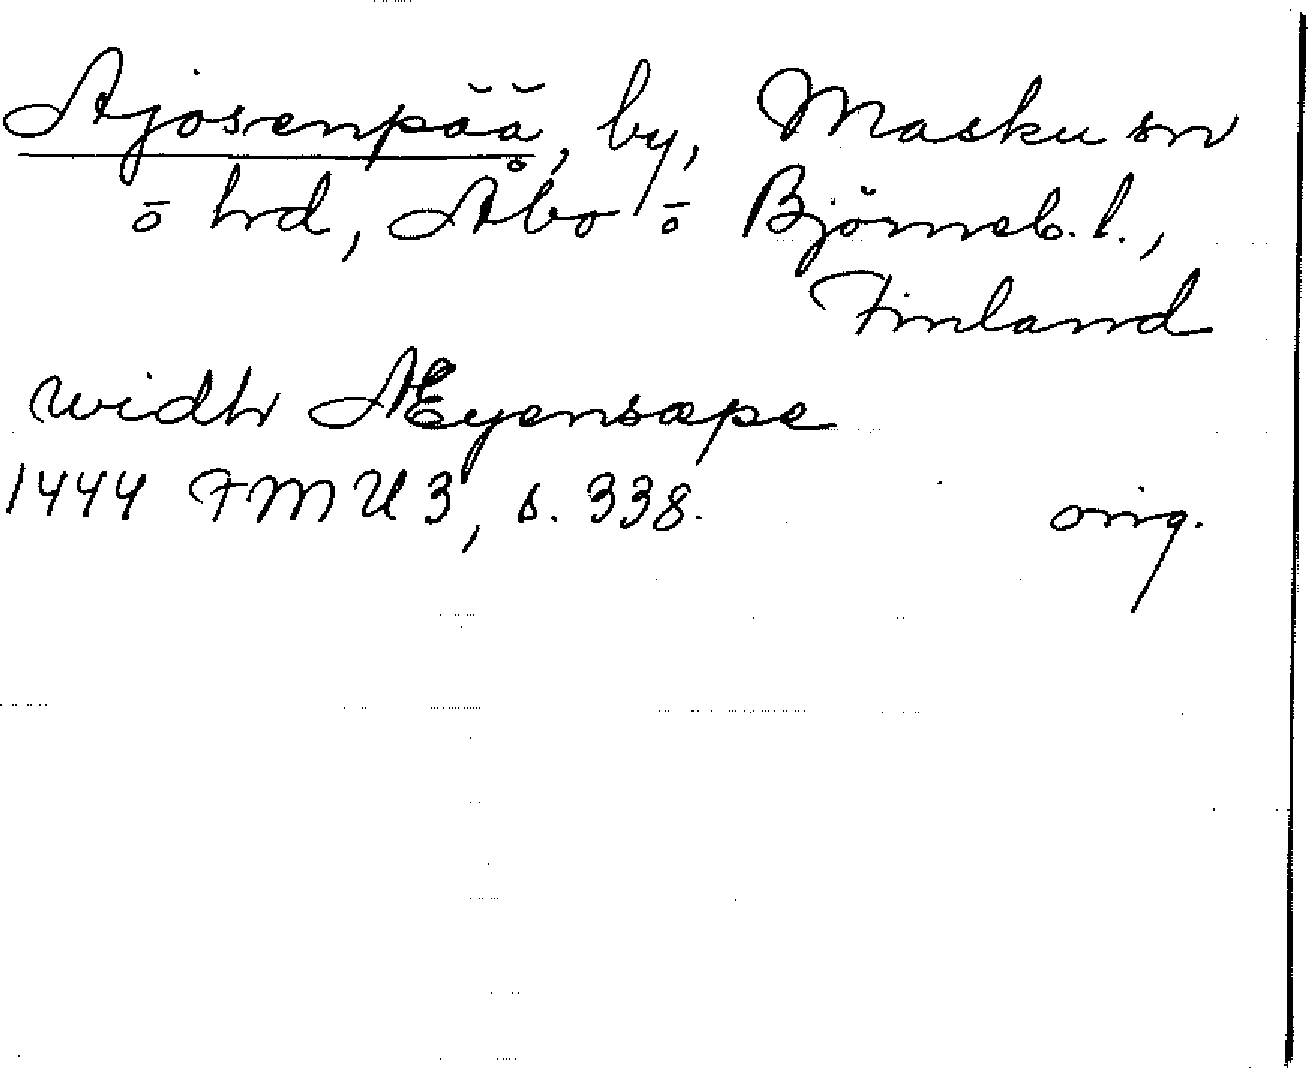 Ajosenpää, by, Masku sn
o hrd, Åbo o Björneb. l.,
Finland
widh Æyensæpe
1444 FMU 3, s. 338. orig.